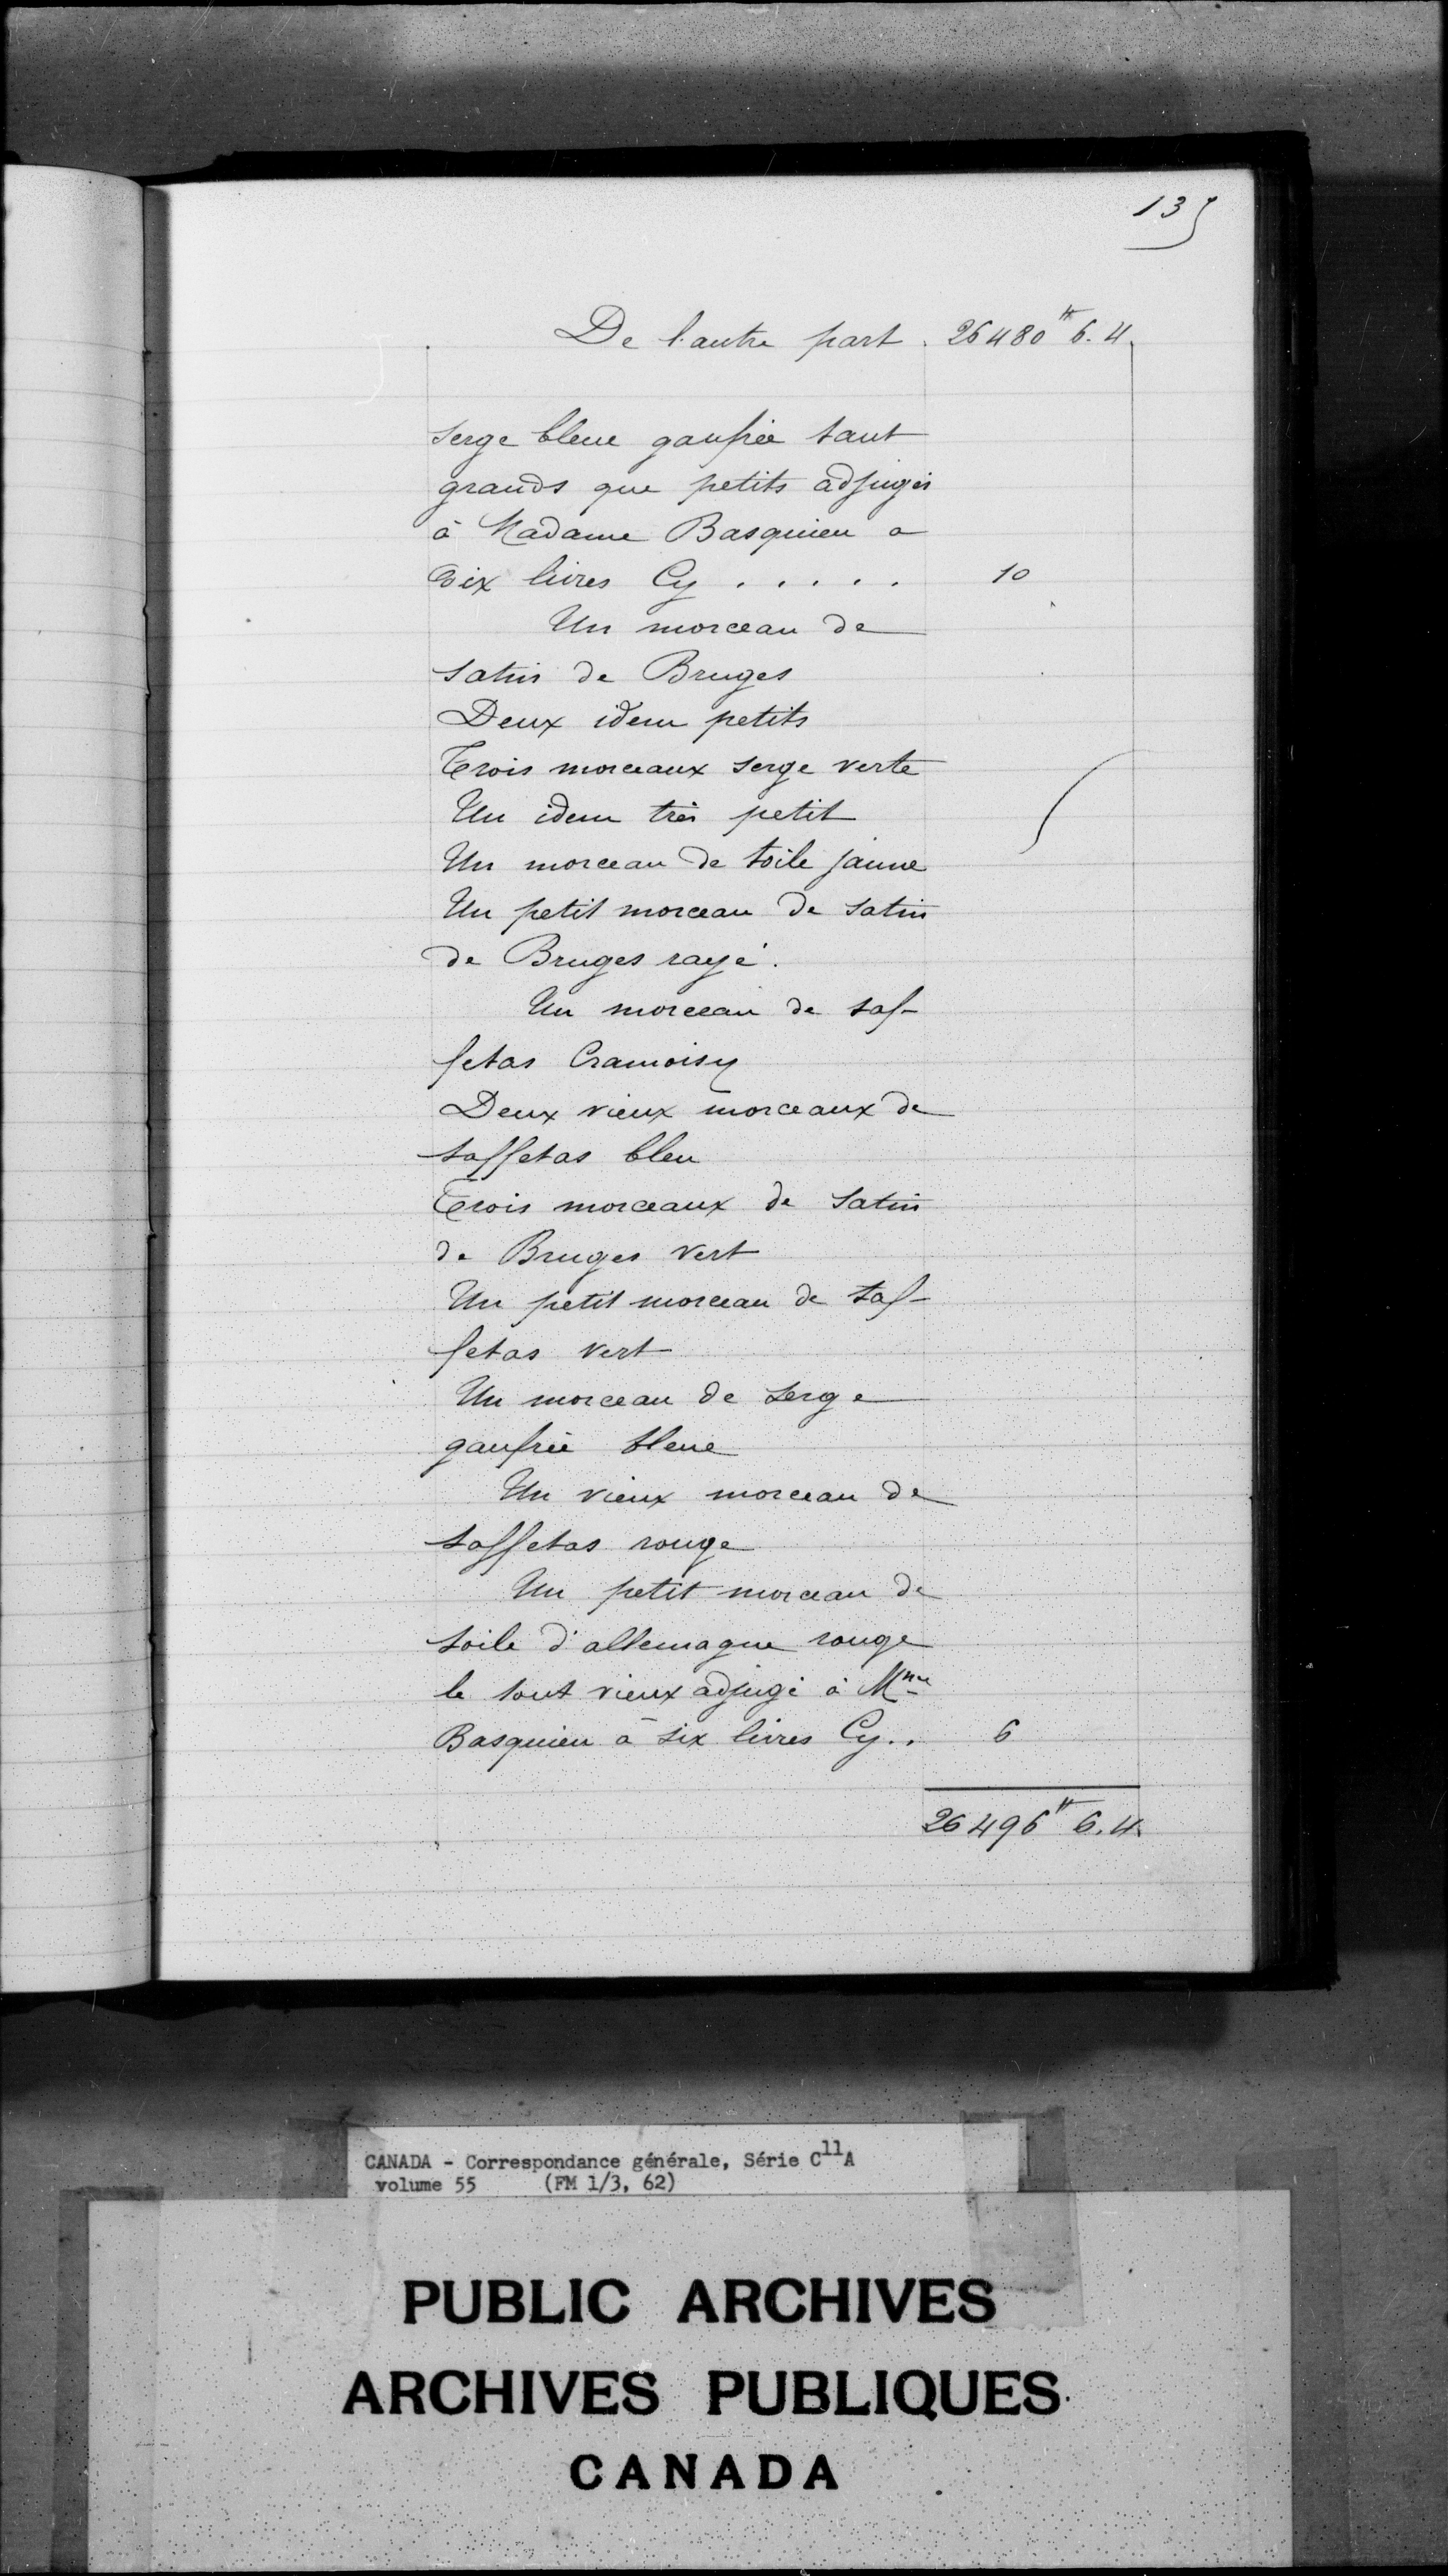 135
De l'autre part. 26480 ₶ 6. 4.
serge bleue gaufrée tant
grands que petits adjugés
à Madame Basquien a
dix livres Cy . . . . . 10
Un morceau de
satin de Bruges
Deux idem petits
Trois morceaux serge verte
Un idem très petit
Un morceau de toile jaune
Un petit morceau de satin
de Bruges rayé.
Un morceau de taf-
fetas Cramoisy
Deux vieux morceaux de
taffetas bleu
Trois morceaux de Satin
de Bruges vert
Un petit morceau de taf-
fetas vert
Un morceau de serge
gaufrée bleue
Un vieux morceau de
taffetas rouge
Un petit morceau de
toile d'allemagne rouge
le tout vieux adjugé à Mme
Basquien à six livres Cy . . 6
26496 ₶ 6. 4.
CANADA - Correspondance générale, Série C11A
volume 55 (FM 1/3, 62)
PUBLIC ARCHIVES
ARCHIVES PUBLIQUES
CANADA